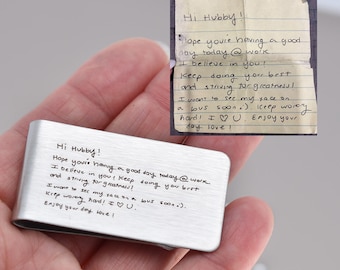 Hi Hubby!
Hope you're having a good
day today @ work
I believe in you!
Keep doing your best
and striving for greatness!
I want to see my face on
a bus soon :). Keep working
hard! I ♡ U Enjoy your
day love!
Hi Hubby!
Hope you're having a good day today @ work
I believe in you! Keep doing your best
and striving for greatness!
I want to see my face on a bus soon :).
Keep working hard! I ♡ U.
Enjoy your day love!